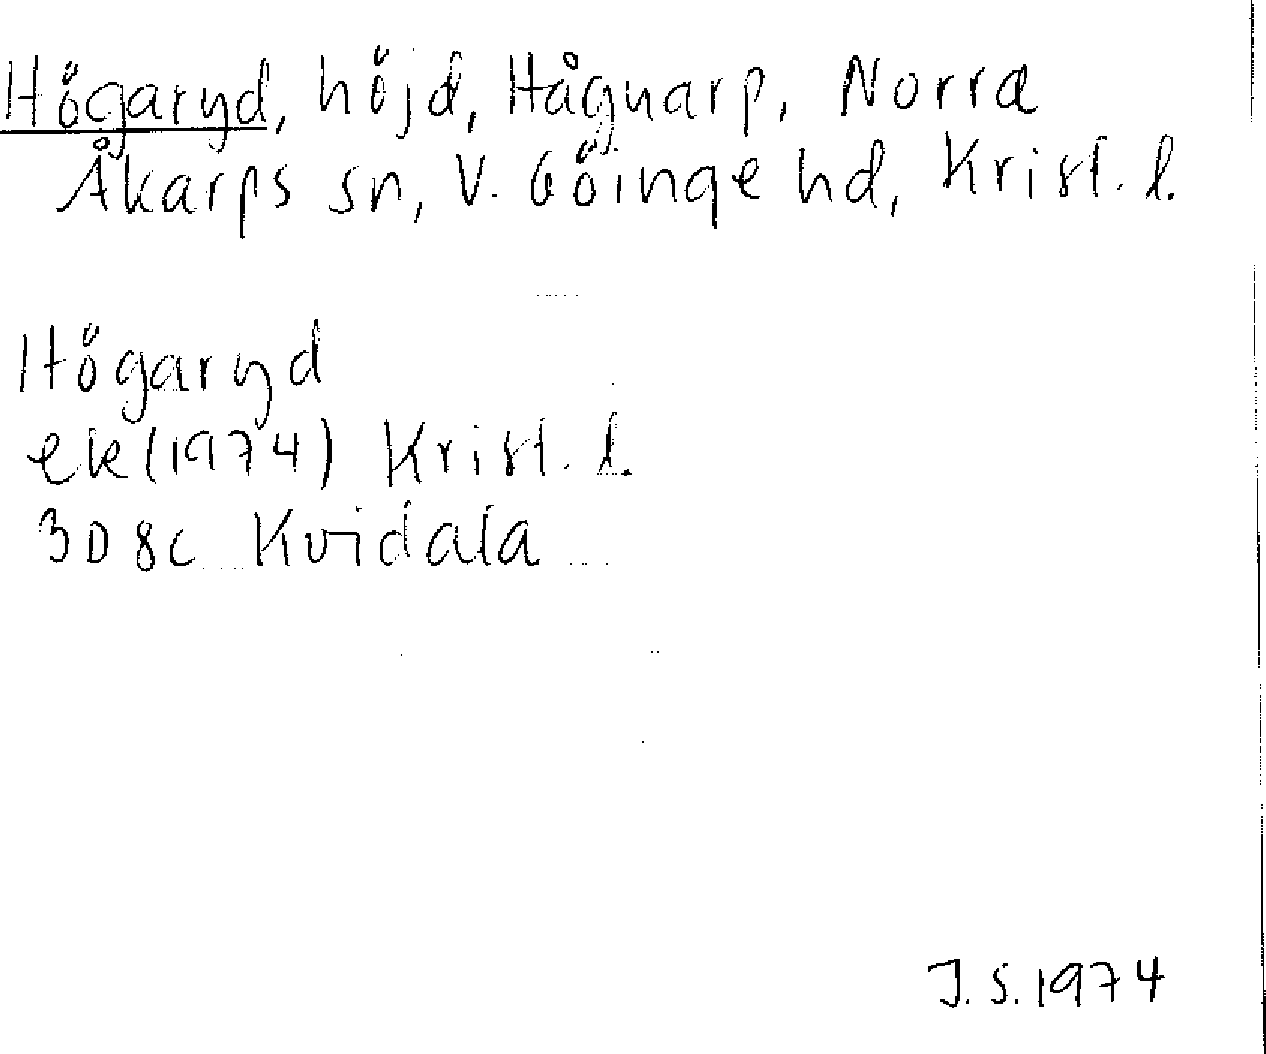 Högaryd, höjd, Hågnarp, Norra
Åkarps sn, V. Göinge hd, Krist. l.
Högaryd
ek (1974) Krist. l.
3D 8c Kvidala
J.S. 1974